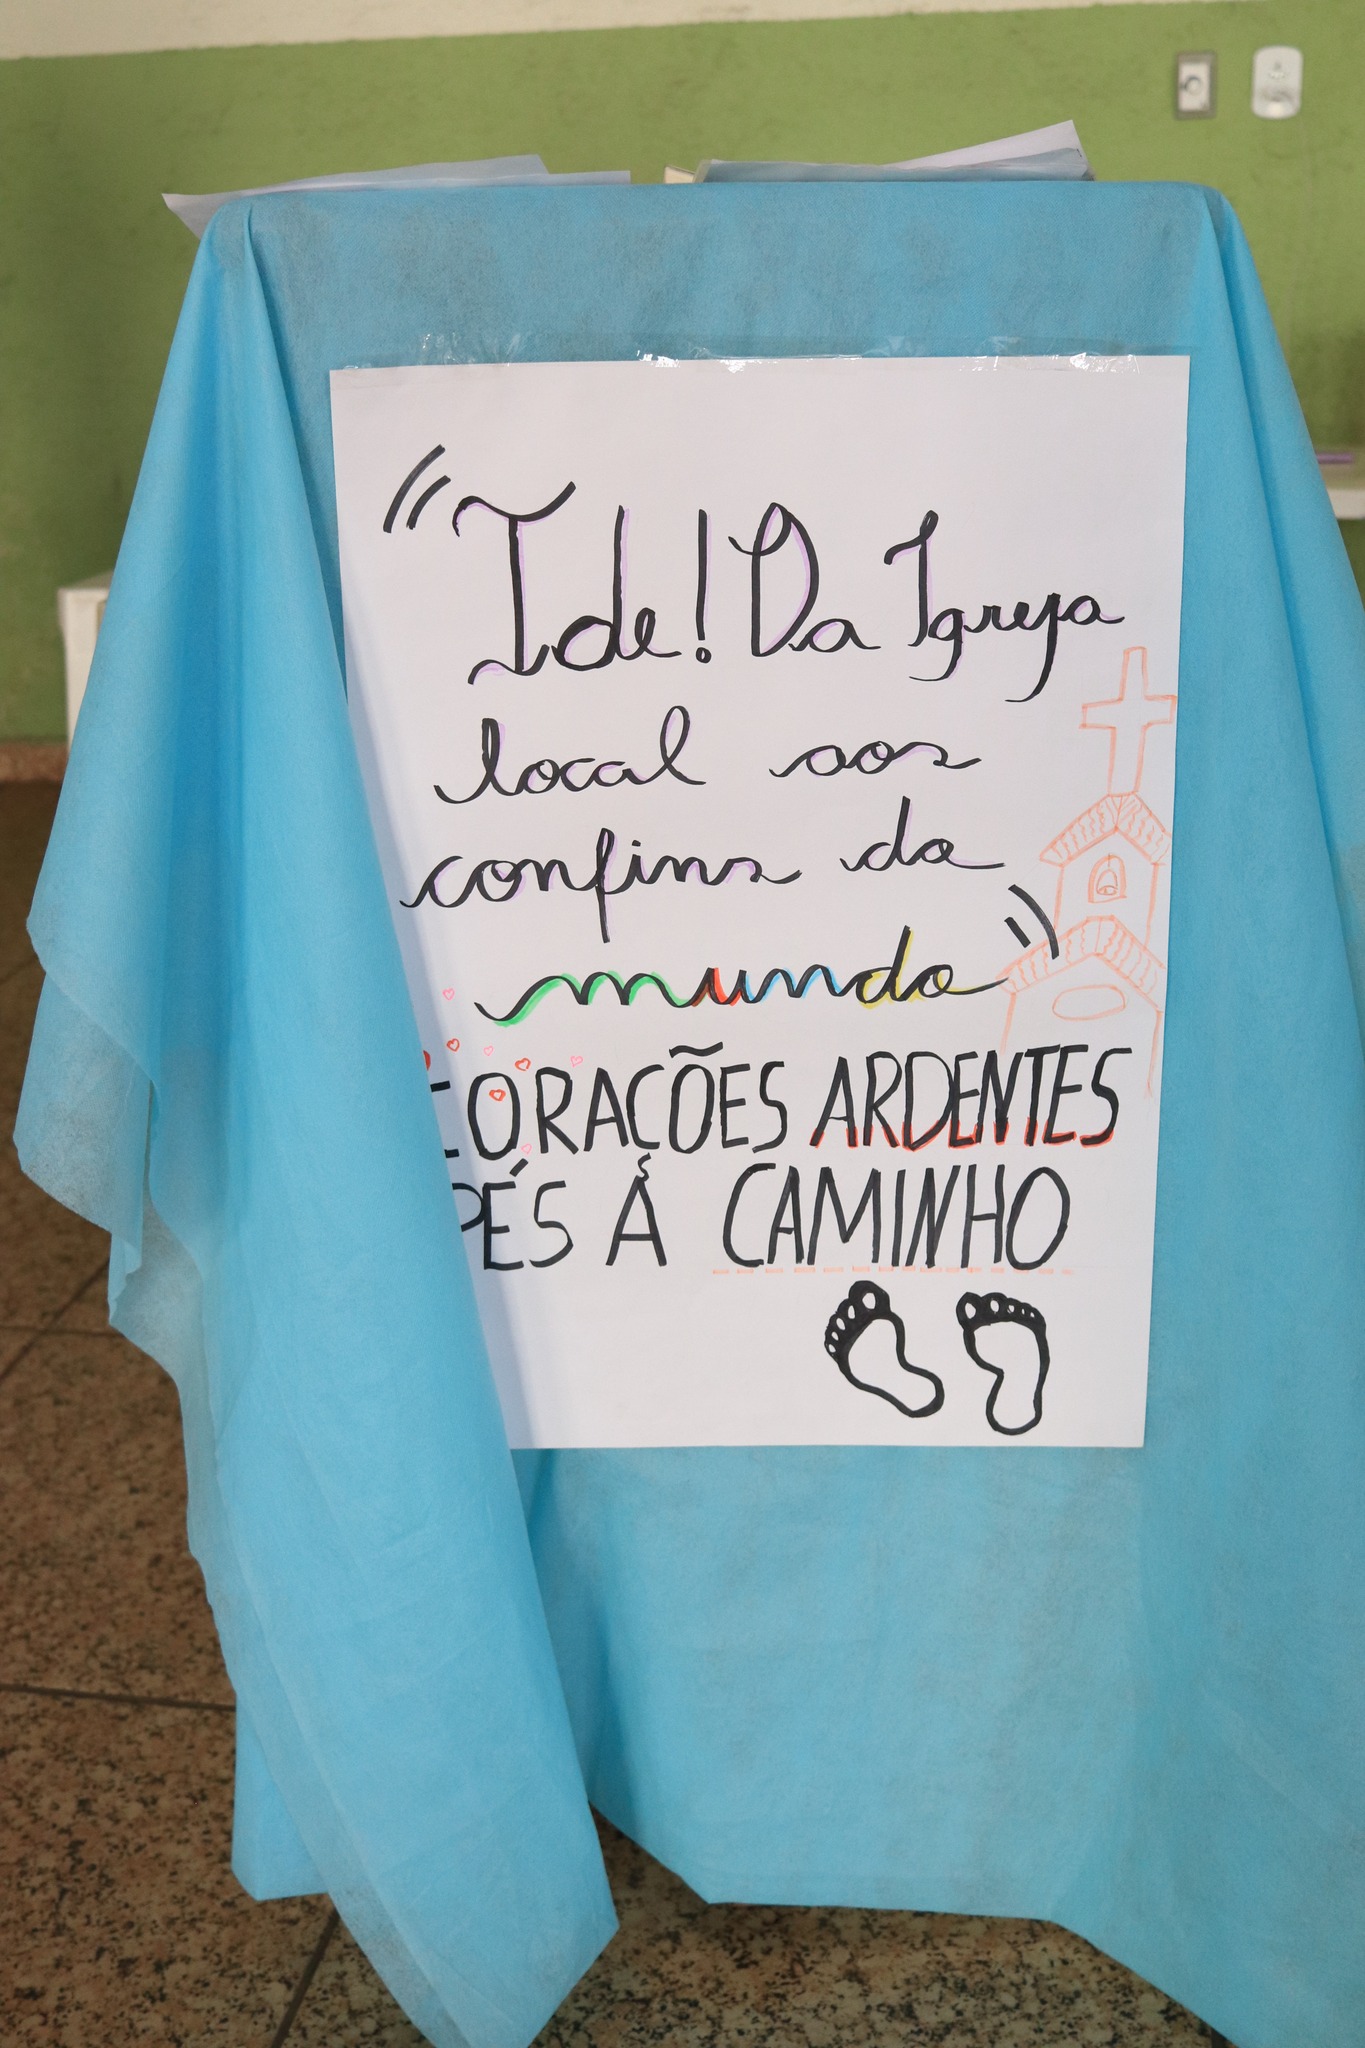 "Ide! Da Igreja
local aos
confins do
mundo"
CORAÇÕES ARDENTES
PÉS À CAMINHO